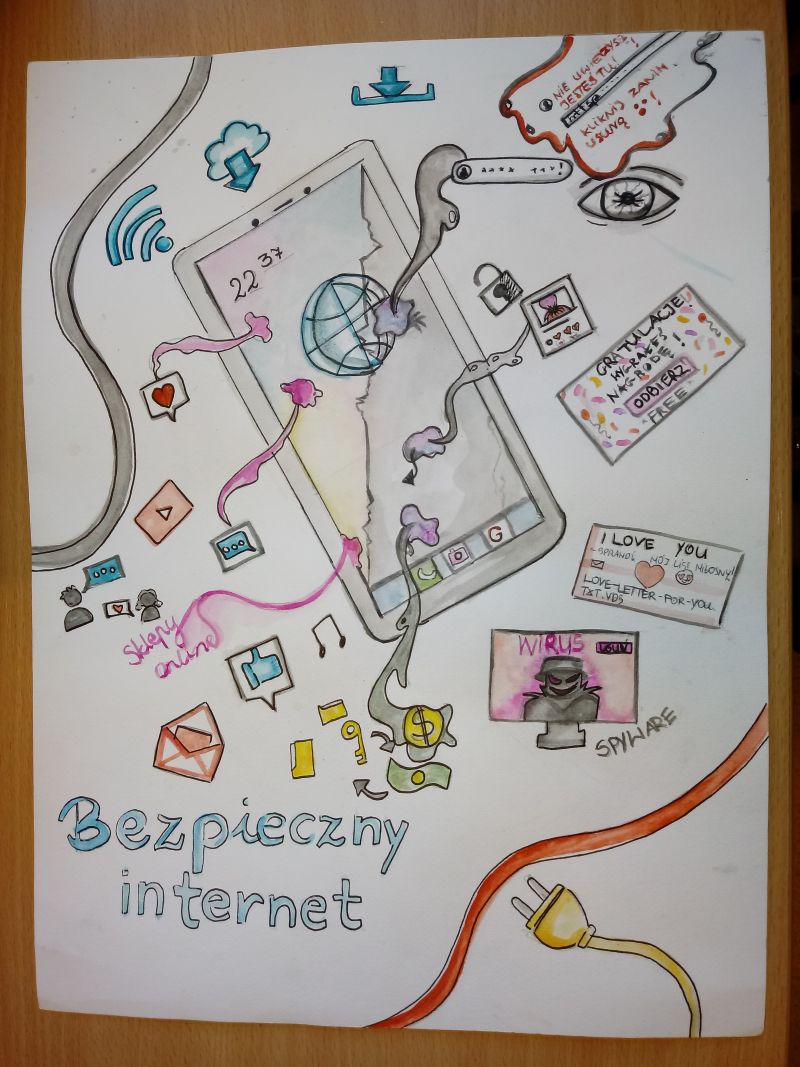 NIE UWIERZYSZ!
JESTEŚ TU!
http
KLIKNIJ ZANIM
USUNĄ
22 37
GRATULACJE!
WYGRAŁEŚ
NAGRODĘ!
ODBIERZ
FREE
G
I LOVE YOU
SPRAWDŹ MÓJ LIST MIŁOSNY!
LOVE-LETTER-FOR-YOU.
TXT.VBS
WIRUS
SPYWARE
Sklepy
online
$
Bezpieczny
internet